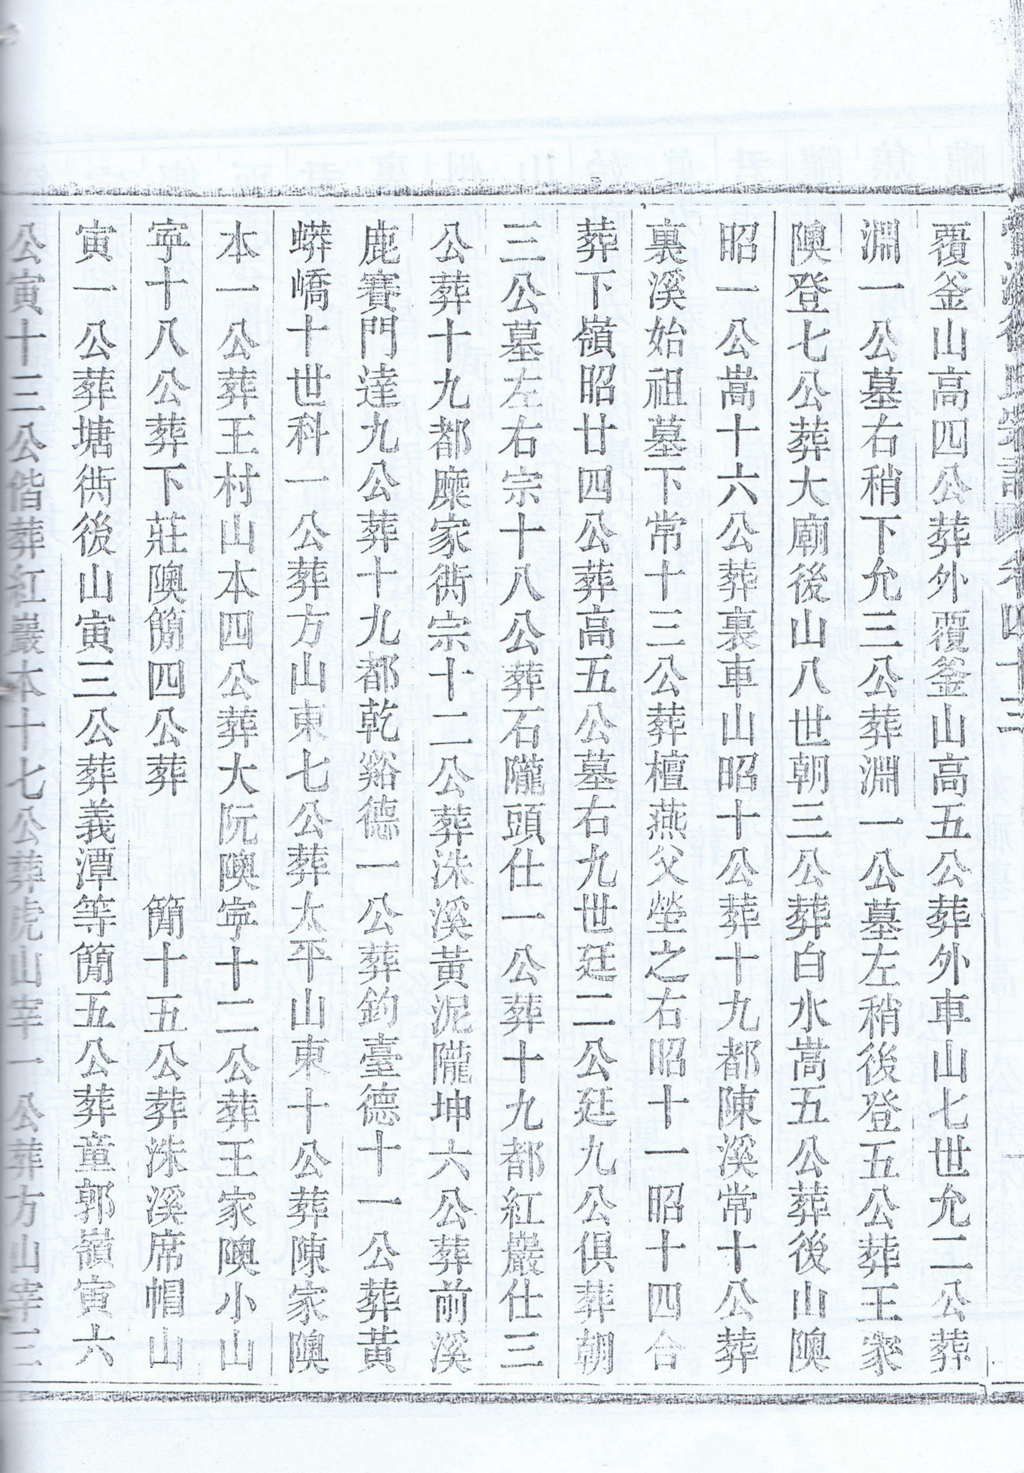 覆釜山高四公葬外覆釜山高五公葬外車山七世允二公葬
淵一公墓右稍下允三公葬淵一公墓左稍後登五公葬王家
隩登七公葬大廟後山八世朝三公葬白水嵩五公葬後山隩
昭一公嵩十六公葬裏車山昭十公葬十九都陳溪常十公葬
裏溪始祖墓下常十三公葬檀燕父塋之右昭十一昭十四合
葬下嶺昭廿四公葬高五公墓右九世廷二公廷九公俱葬朝
三公墓左右宗十八公葬石隴頭仕一公葬十九都紅巖仕三
公葬十九都麋家衖宗十二公葬洙溪黃泥隴坤六公葬前溪
鹿賽門達九公葬十九都乾谿德一公葬鈞臺德十一公葬黃
蟒嶠十世科一公葬方山東七公葬太平山東十公葬陳家隩
本一公葬王村山本四公葬大阮隩寜十二公葬王家隩小山
寜十八公葬下莊隩簡四公葬　簡十五公葬洙溪席帽山
寅一公葬塘衖後山寅三公葬義潭等簡五公葬童郭嶺寅六
公寅十三公偕葬紅巖本十七公葬虎山宰一公葬方山宰三